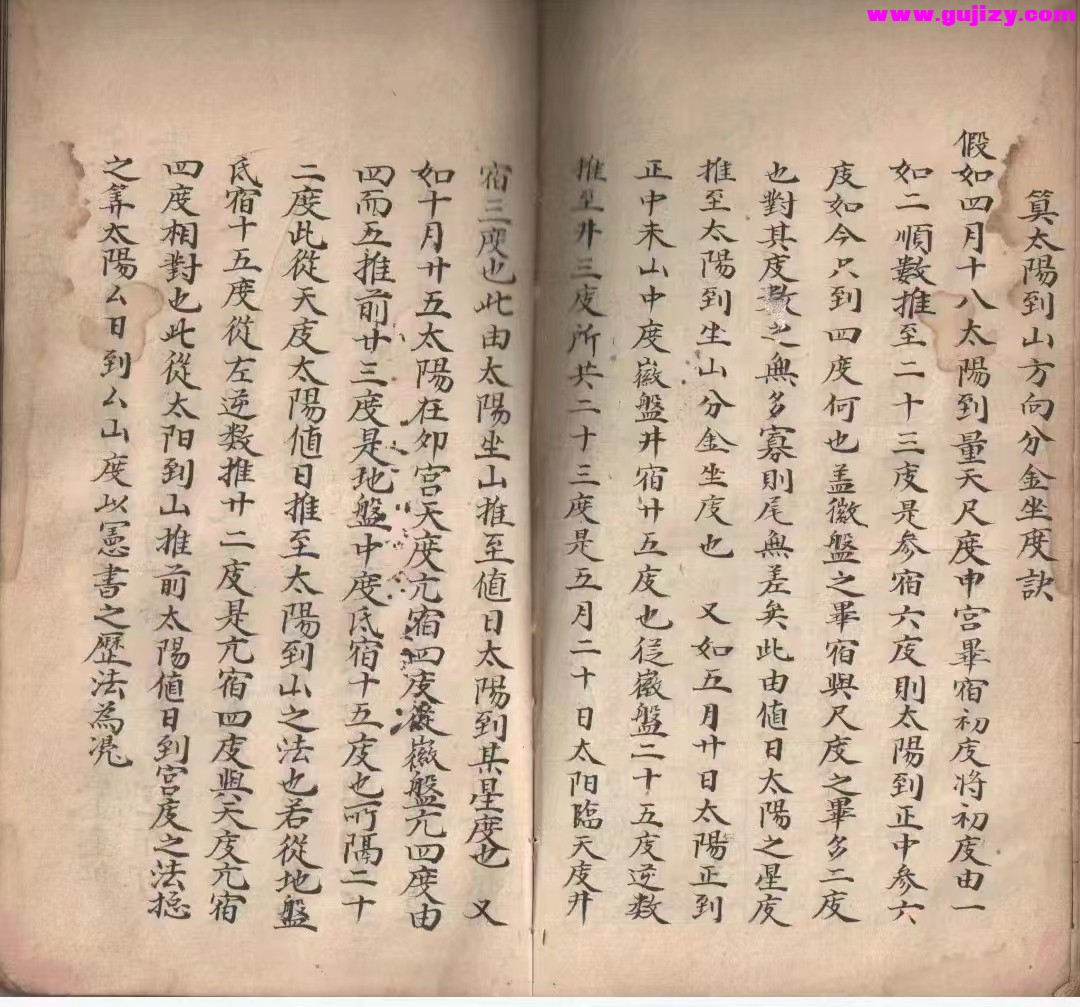 www.gujizy.com
算太陽到山方向分金坐度訣
假如四月十八太陽到量天尺度申宮畢宿初度將初度由一
如二順數推至二十三度是參宿六度則太陽到正中參六
度如今只到四度何也盖徽盤之畢宿與尺度之畢多二度
也對其度數之無多寡則尾無差矣此由值日太陽之星度
推至太陽到坐山分金坐度也 又如五月廿日太陽正到
正中未山中度徽盤井宿廿五度也從徽盤二十五度逆数
推至井三度所共二十三度是五月二十日太阳臨天度井
宿三度也此由太陽坐山推至値日太陽到某星度也 又
如十月廿五太陽在卯宮天度亢宿四度從徽盤亢四度由
四而五推前廿三度是地盤中度氐宿十五度也所隔二十
二度此從天度太陽值日推至太陽到山之法也若從地盤
氐宿十五度從左逆数推廿二度是亢宿四度與天度亢宿
四度相對也此從太阳到山推前太陽値日到宮度之法揔
之筭太陽厶日到厶山度以憲書之歷法為凴